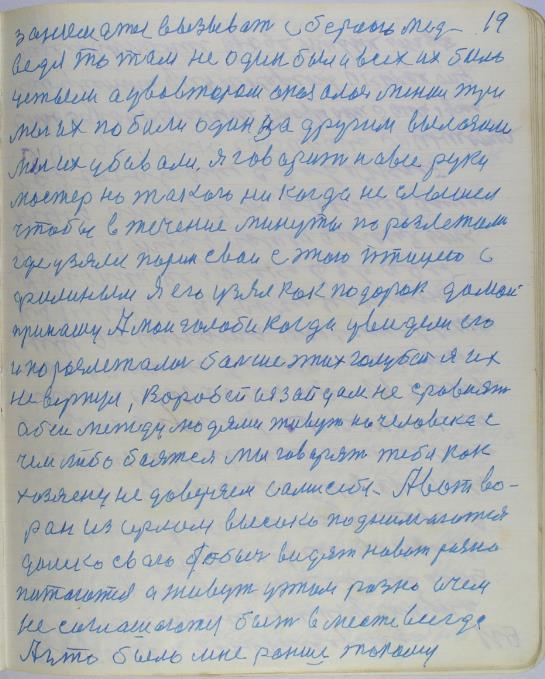 19
вызывать с берлоги мед-
веди то там не один был а всех их было
четыри а у во втором оказалося менши три
мы их побили один за другим вылазили
мы их убивали. Я говорит на все руки
мастер но такого никогда не слышел
чтобы в течение минуты поразлетали
где узяли пари сваи с этою птицею с
филиным Я его узял как подорок домой
принашу А мои голоби когда увидели его
и поразлеталси болше этих голубей я их
не вернул, Воробей и язай там не сровнят
а всеи между людями живут но человека с
чем либо боятся мы говорят тебя как
хозяену не доверяем сами себе. А вот во-
ран из орлом высоко поднимаются
далико сваю добыч видят но вот разно
питаются а живут у том разно а чем
не соглашаются быть в месте всегда
А что было мне рание такому